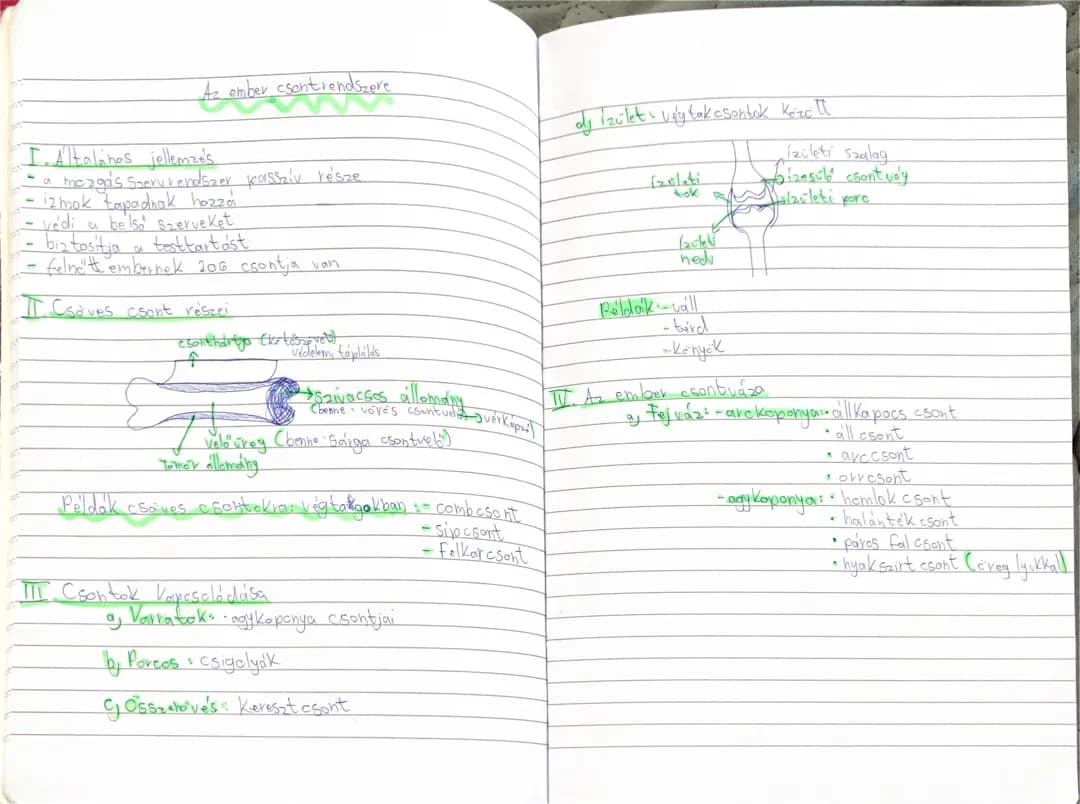 Az ember csontrendszere
I. Általános jellemzés
- a mozgás szervrendszer passzív része
- izmok tapadnak hozzá
- védi a belső szerveket
- biztosítja a testtartást
- felnőtt embernek 206 csontja van
II. Csöves csont részei
csonthártya (kötőszövet)
védelem, táplálás
szivacsos állomány
(benne: vörös csontvelő) → vérképző
velőüreg (benne: Sárga csontvelő)
Tömör állomány
Példák csöves csontokra: végtagokban: - combcsont
- sípcsont
- Felkarcsont
III. Csontok kapcsolódása
a, Varratok: · agykoponya csontjai
b, Porcos: csigolyák
c, Összenövés: Keresztcsont
d, Ízület: végtakcsontok között
ízületi szalag
ízületi tok
ízesülő csontvég
ízületi porc
ízületi
nedv
Példák: - váll
- térd
- könyök
IV. Az ember csontváza
a, Fejváz: - arckoponya: · állkapocs csont
· áll csont
· arccsont
· orrcsont
- agykoponya: · homlok csont
· halánték csont
· páros fal csont
· nyakszirt csont (öreg lyukkal)